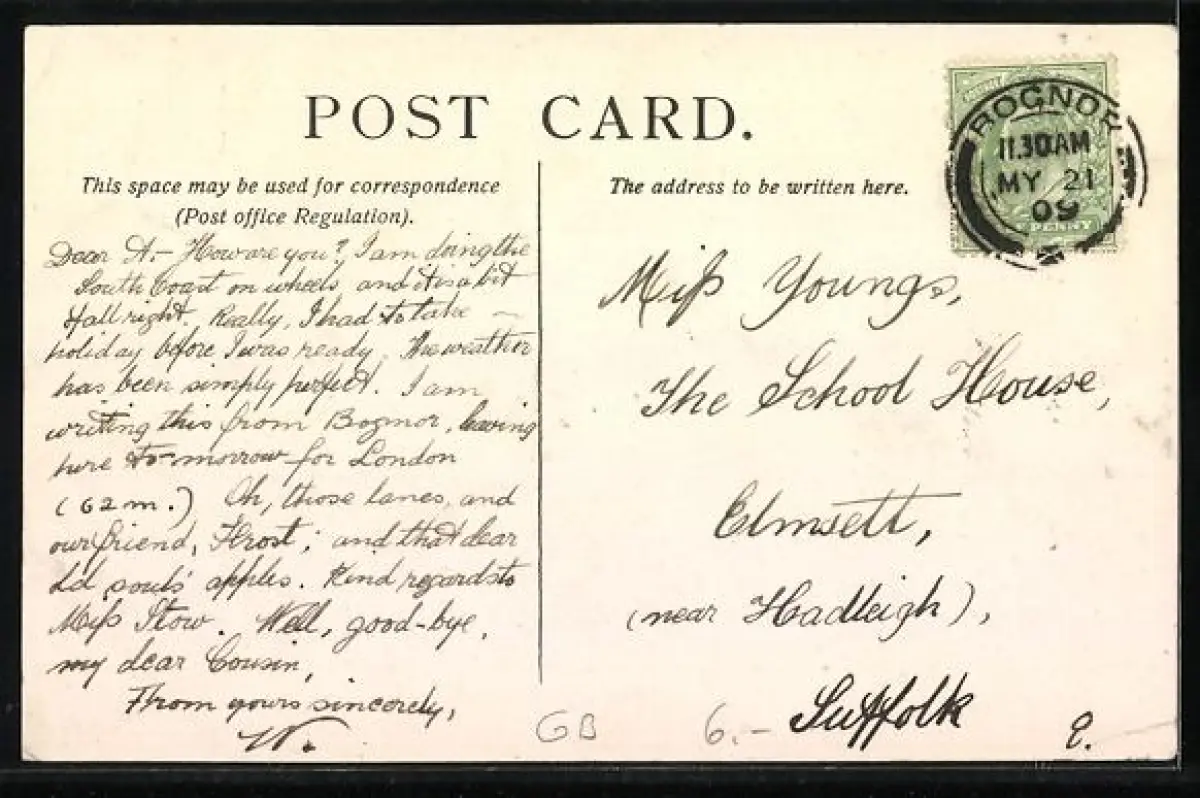 POST CARD.
This space may be used for correspondence
(Post office Regulation).
The address to be written here.
BOGNOR
11.30 AM
MY 21
09
PENNY
Dear A– How are you? I am doing the
South Coast on wheels and it is a bit
of all right. Really, I had to take
holiday before I was ready. The weather
has been simply perfect. I am
writing this from Bognor, leaving
here to-morrow for London
(62 m.) Oh, those lanes, and
our friend, Frost; and that dear
old souls' apples. Kind regards to
Miss Stow. Well, good-bye,
my dear Cousin,
From yours sincerely,
W.
Miss Youngs,
The School House,
Elmsett,
(near Hadleigh),
Suffolk
E.
GB
6.–